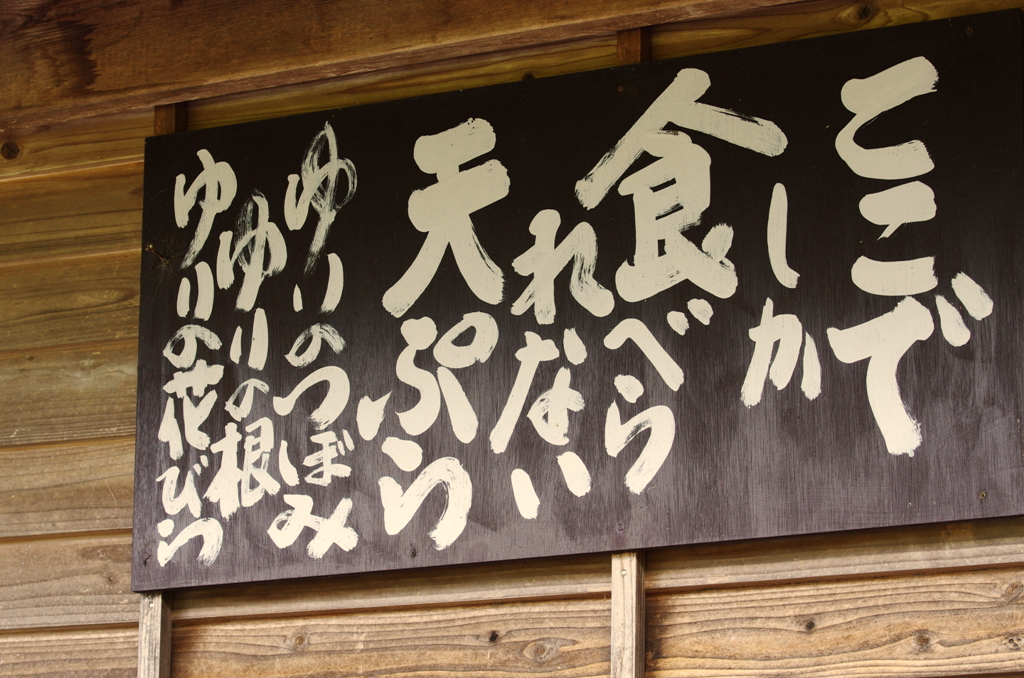 ここで
しか
食べら
れない
天ぷら
ゆりのつぼみ
ゆりの根
ゆりの花びら